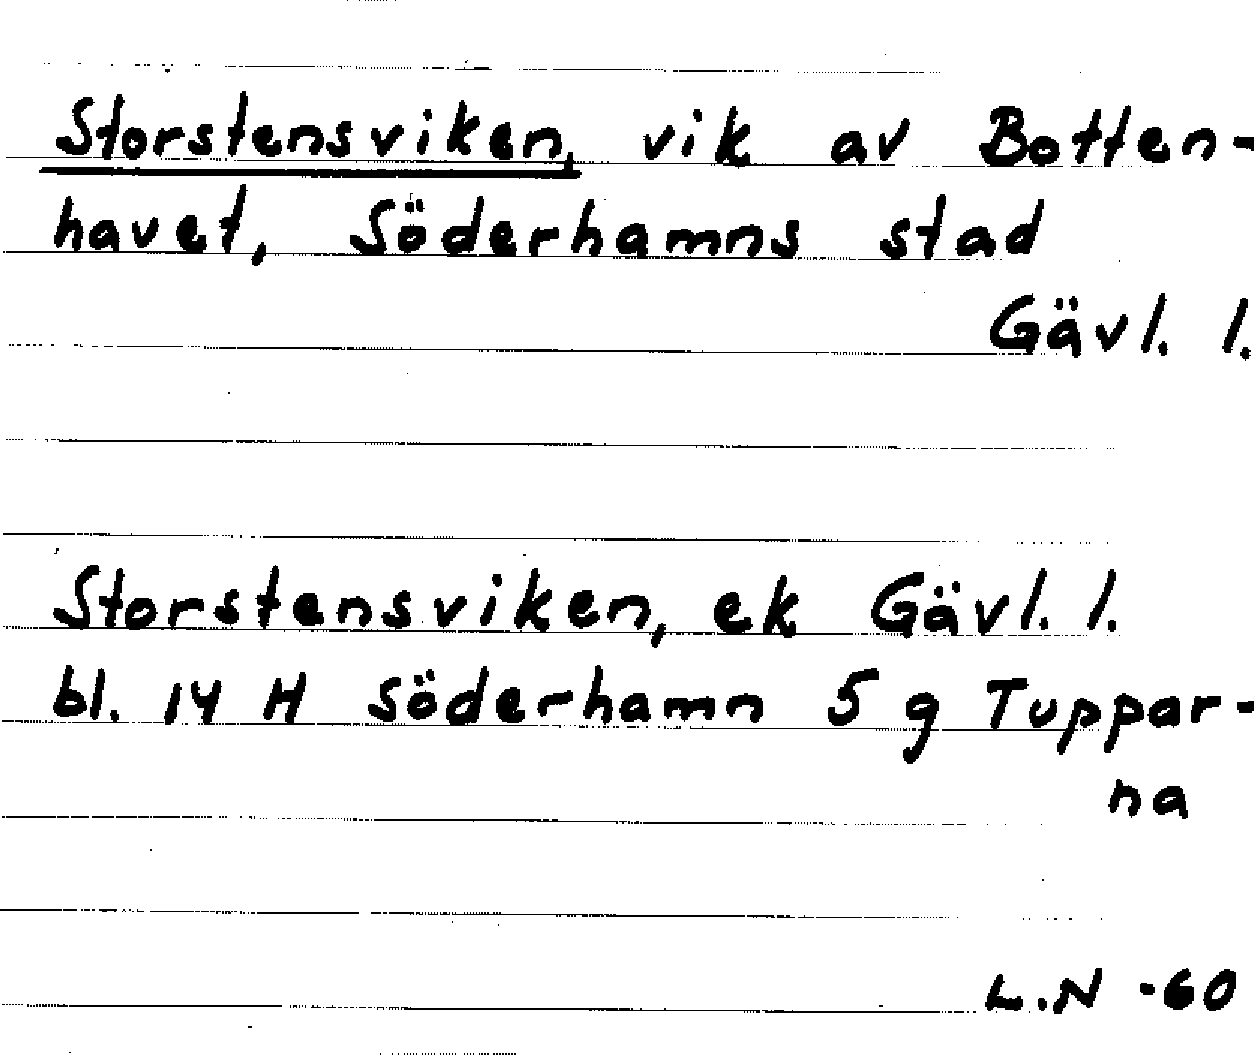 Storstensviken, vik av Botten-
havet, Söderhamns stad
Gävl. l.
Storstensviken, ek Gävl. l.
bl. 14 H Söderhamn 5 g Tuppar-
na
L.N -60